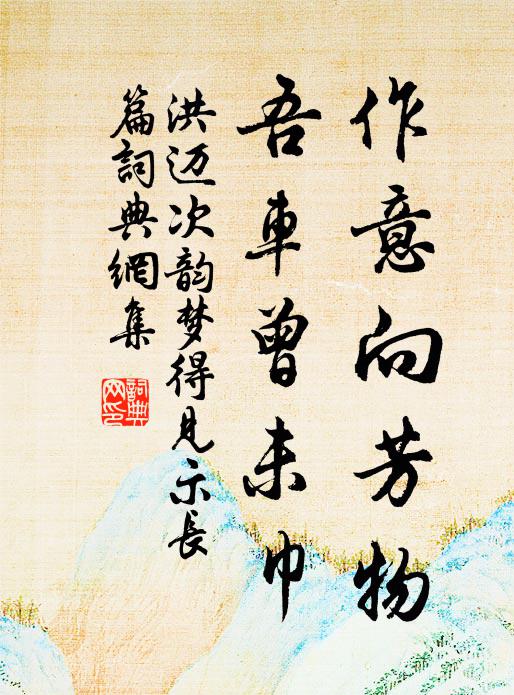 作意向芳物
吾車曾未巾
洪迈次韵梦得见示長
篇詞典網集
詞典
网印